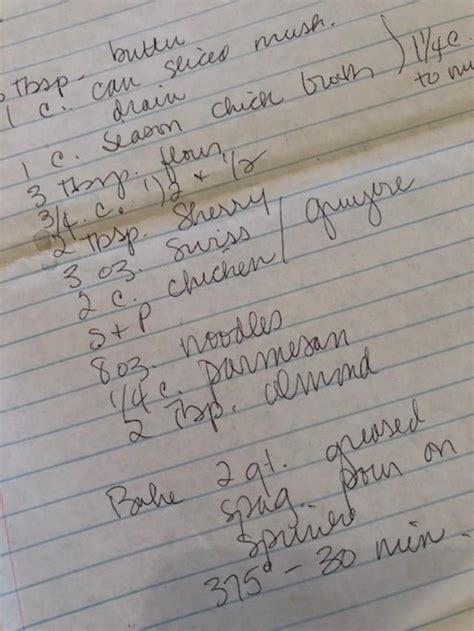 Tbsp. butter
1 c. can sliced mush.
drain
1 c. season chick broth ) 1 1/4 c.
3 tbsp. flour to
3/4 c. 1/2 + 1/2
2 tbsp. Sherry
3 oz. Swiss / gruyere
2 c. chicken
S + P
8 oz. noodles
1/4 c. parmesan
2 Tbsp. almond
Bake 2 qt. greased
spag. pour on
375° - 30 min.